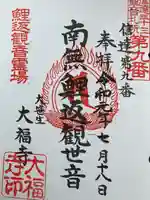 第九番
信達第九番
奉拝 令和元年七月十八日
南無鯉返観世音
大世生
大福寺
鯉返観音霊場
大福寺印